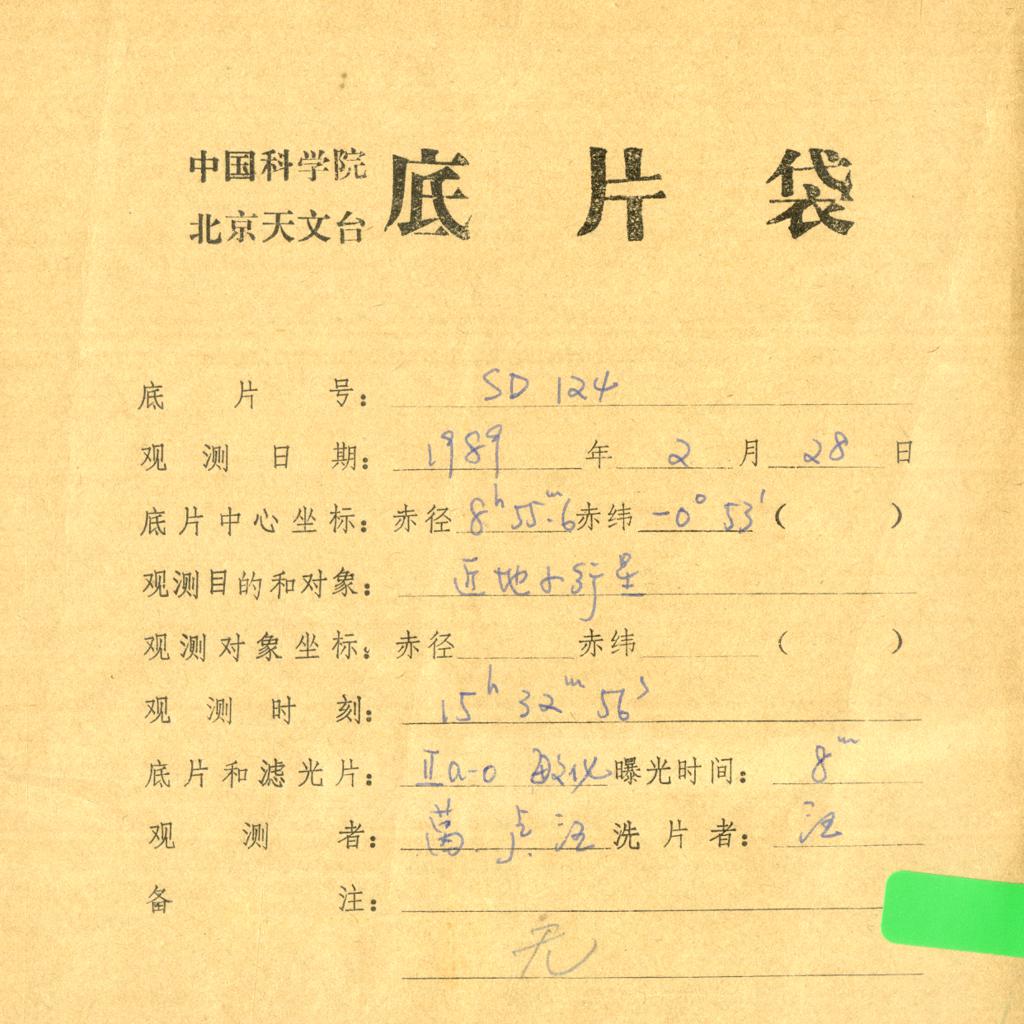 中国科学院
北京天文台
底片袋
底片号: SD 124
观测日期: 1989年2月28日
底片中心坐标: 赤径 8h 55m.6 赤纬 -0° 53′ ( )
观测目的和对象: 近地小行星
观测对象坐标: 赤径 赤纬 ( )
观测时刻: 15h 32m 56s
底片和滤光片: IIa-o 敏化 曝光时间: 8m
观测者: 汪 洗片者: 汪
备注:
无